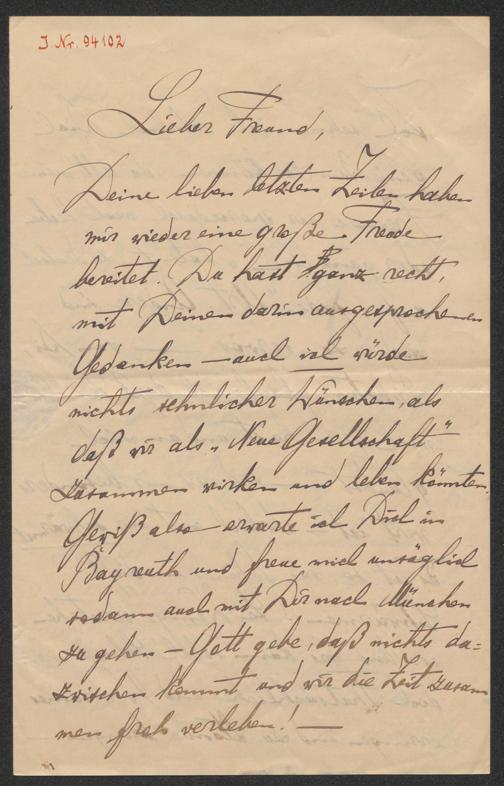 J. Nr. 94102
Lieber Freund,
Deine lieben letzten Zeilen haben
mir wieder eine große Freude
bereitet. Du hast ganz recht,
mit Deinen darin ausgesprochenen
Gedanken – auch ich würde
nichts sehnlicher Wünschen, als
daß wir als „Neue Gesellschaft"
zusammen wirken und leben könnten.
Gewiß also – erwarte ich Dich in
Bayreuth und freue mich unsäglich
sodann auch mit Dir nach München
zu gehen – Gott gebe, daß nichts da=
zwischen kommt und wir die Zeit zusam
men froh verleben! —